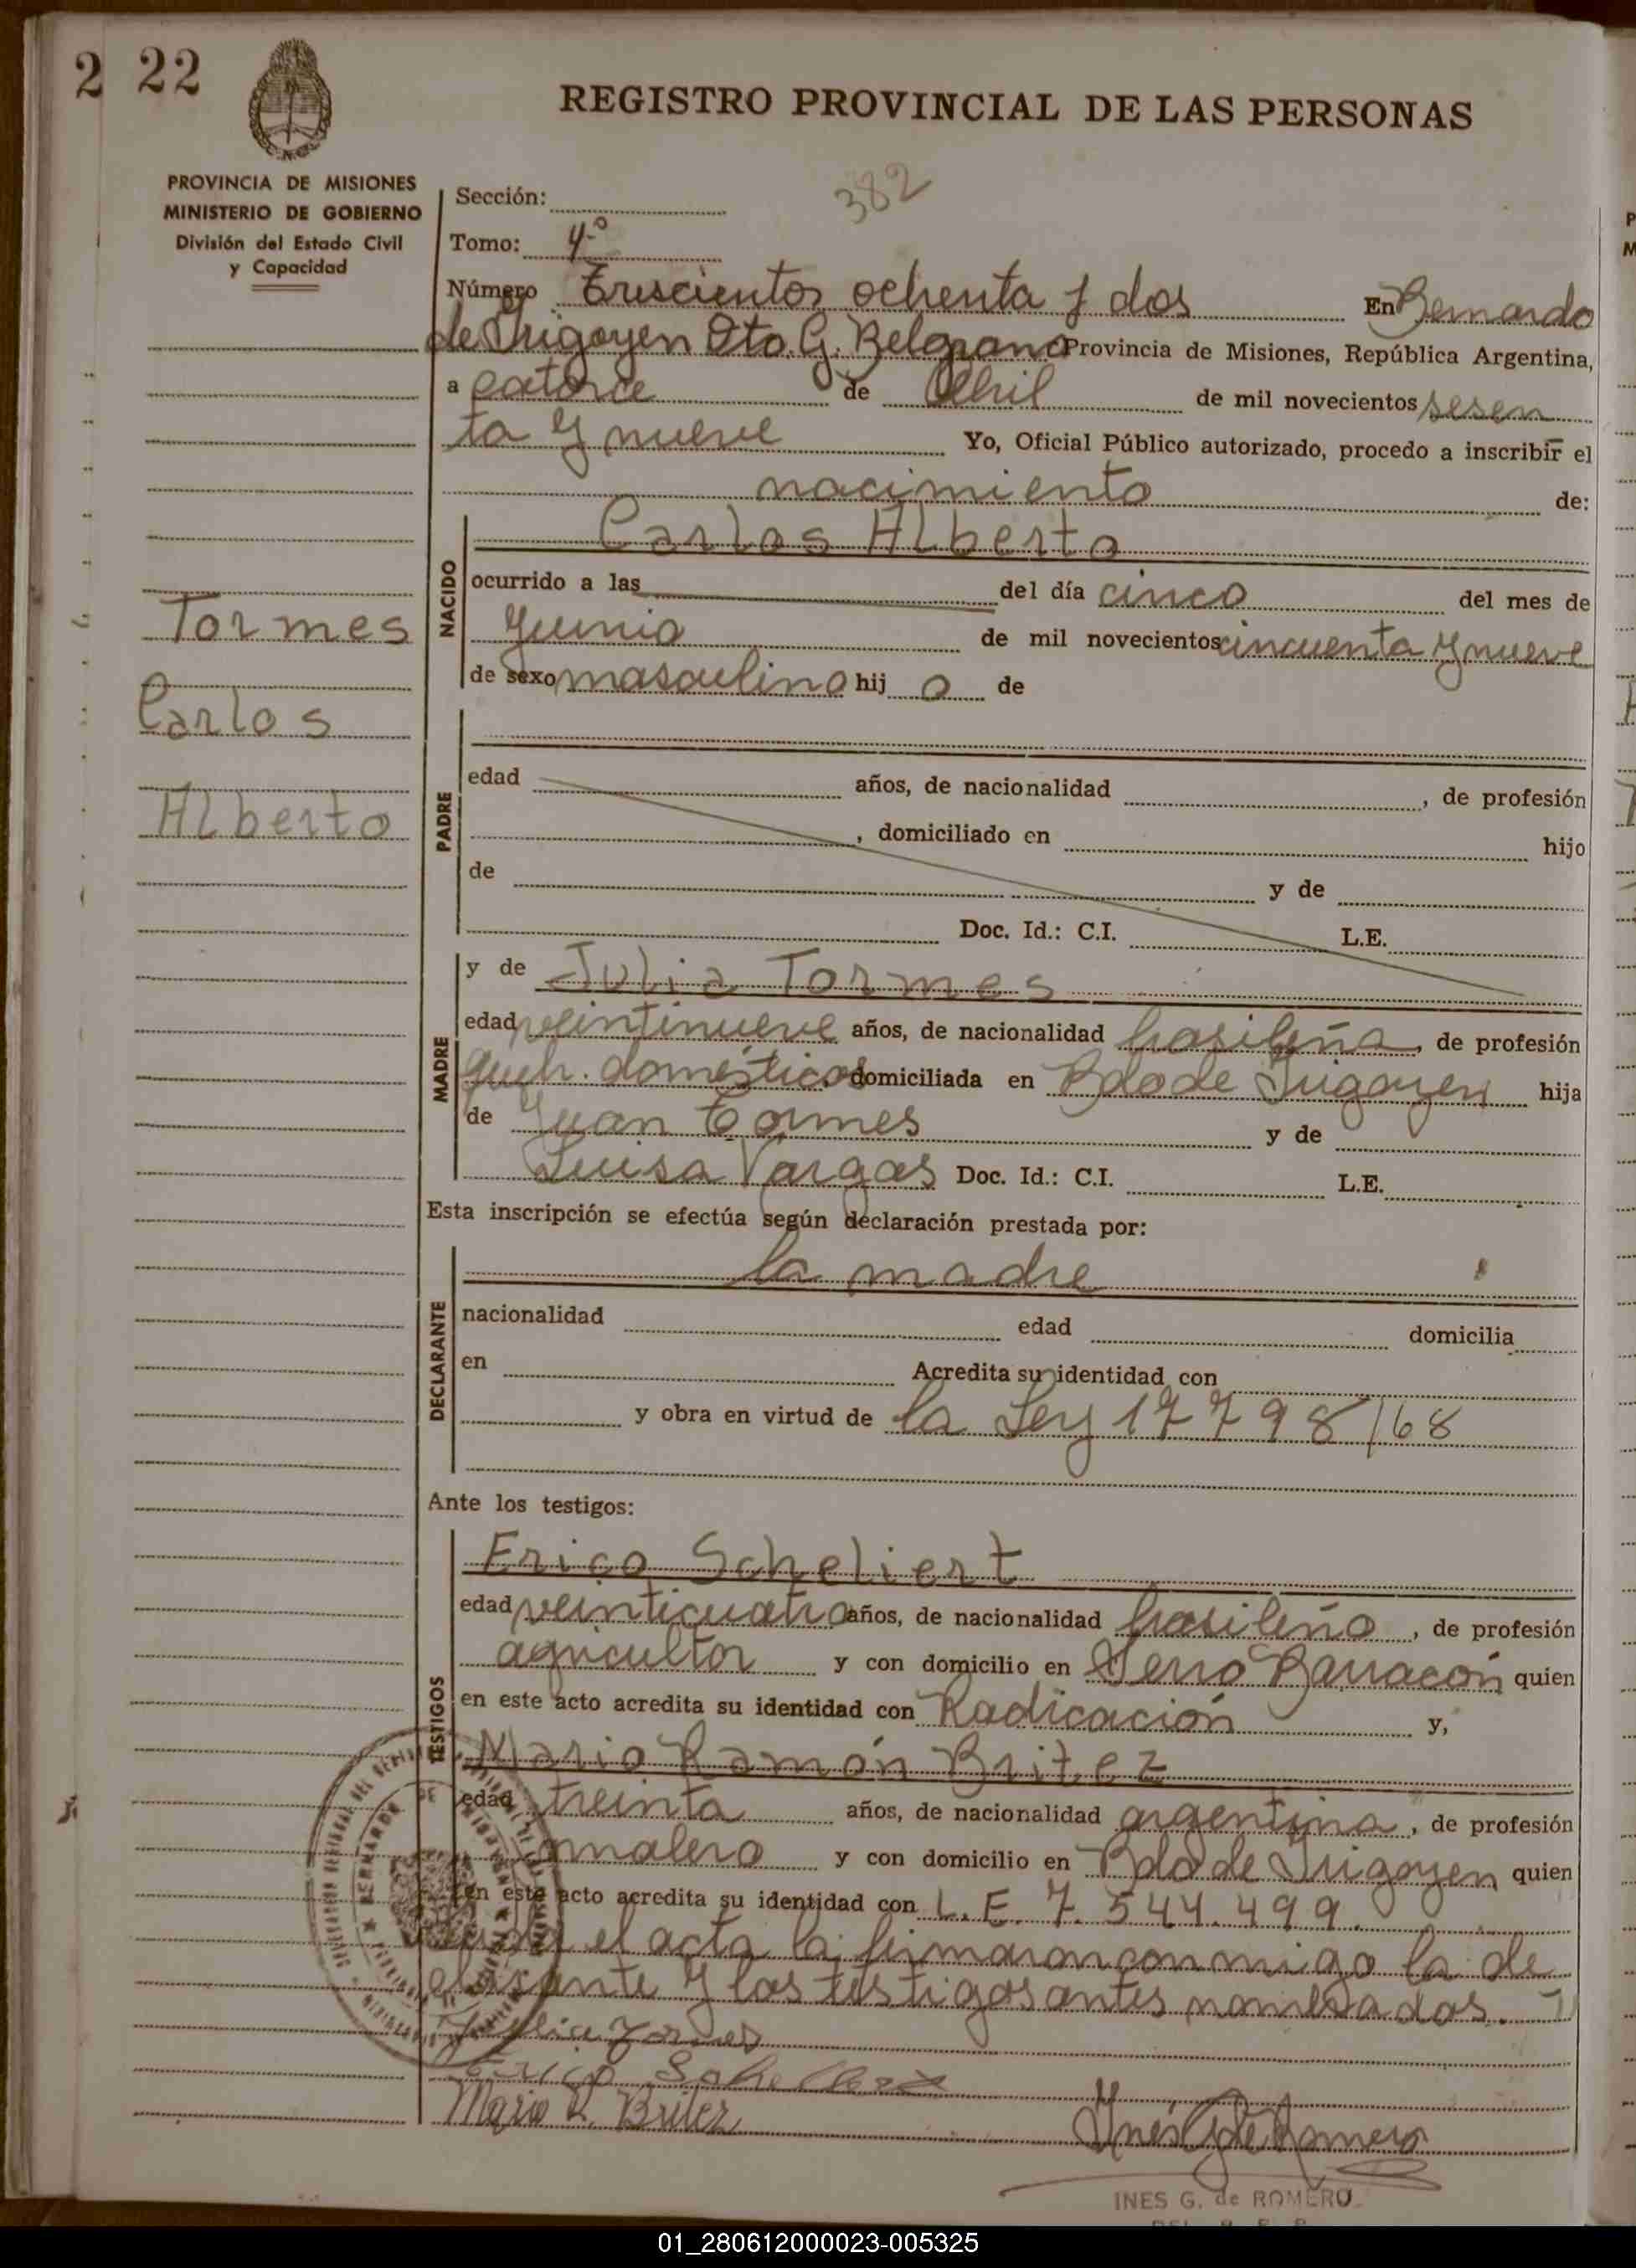 2 22
REGISTRO PROVINCIAL DE LAS PERSONAS
PROVINCIA DE MISIONES
MINISTERIO DE GOBIERNO
División del Estado Civil
y Capacidad
382
Sección:
Tomo: 4º
Número Trescientos ochenta y dos En Bernardo
de Irigoyen Dto. G. Belgrano Provincia de Misiones, República Argentina,
a catorce de Abril de mil novecientos sesen
ta y nueve Yo, Oficial Público autorizado, procedo a inscribir el
nacimiento de:
NACIDO
Carlos Alberto
ocurrido a las del día cinco del mes de
Junio de mil novecientos cincuenta y nueve
de sexo masculino hij o de
Tormes
Carlos
Alberto
PADRE
edad años, de nacionalidad , de profesión
, domiciliado en hijo
de y de
Doc. Id.: C.I. L.E.
MADRE
y de Julia Tormes
edad veintinueve años, de nacionalidad brasileña, de profesión
queh. domésticos domiciliada en Bdo de Irigoyen hija
de Juan Tormes y de
Luisa Vargas Doc. Id.: C.I. L.E.
Esta inscripción se efectúa según declaración prestada por:
DECLARANTE
la madre
nacionalidad edad domicilia
en Acredita su identidad con
y obra en virtud de la Ley 17798/68
Ante los testigos:
TESTIGOS
Erico Scheliert
edad veinticuatro años, de nacionalidad brasileño, de profesión
agricultor y con domicilio en Barracón quien
en este acto acredita su identidad con Radicación y,
Mario Ramón Britez
edad treinta años, de nacionalidad argentina, de profesión
jornalero y con domicilio en Bdo de Irigoyen quien
en este acto acredita su identidad con L.E. 7.544.499.
el acta la firmaron conmigo la de
clarante y los testigos antes nombrados.
Julia Tormes
Erico
Mario R. Britez
Inés G de Romero
INES G. de ROMERO
01_280612000023-005325